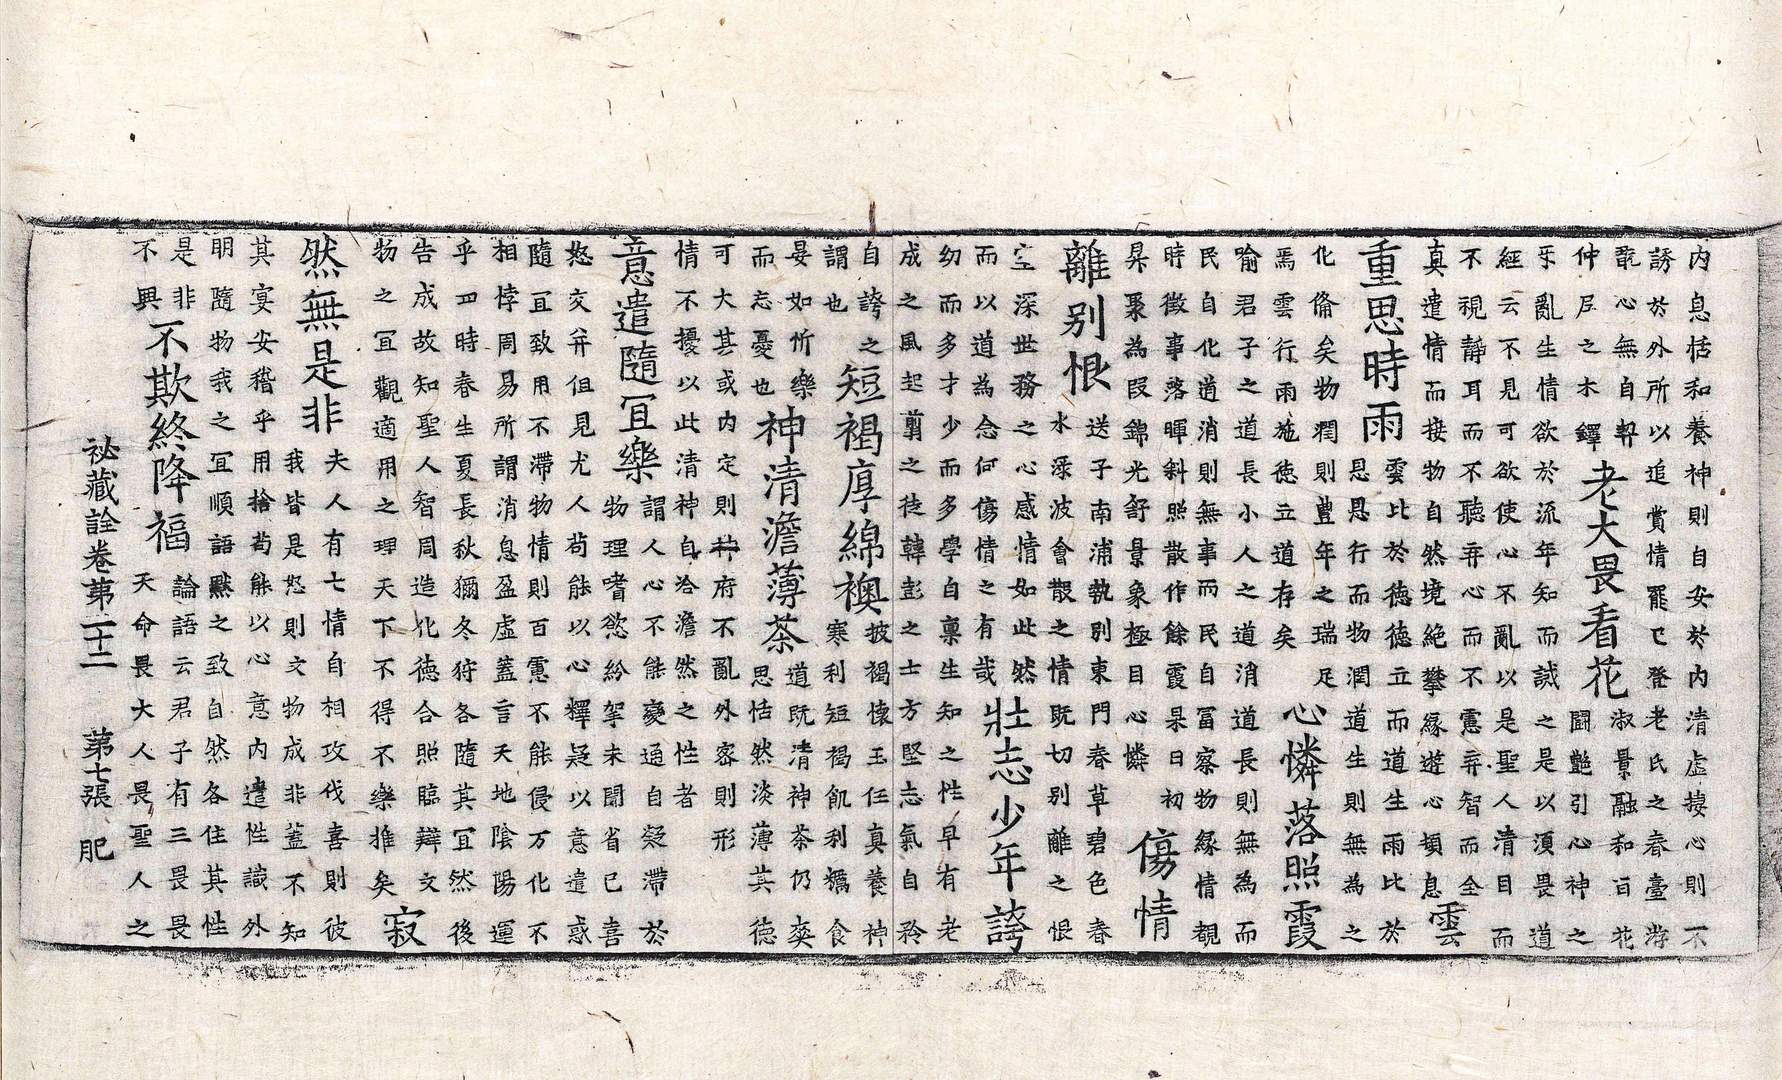 内息恬和養神則自安於内清虛接心則不
誘於外所以追賞情罷已登老氏之春臺游
翫心無自契淑景融和百花
仲尼之木鐸老大畏看花鬪艷引心神之
乐亂生情欲於流年知而誡之是以湏畏道
經云不見可欲使心不亂以是聖人清目而
不視靜耳而不聽弃心而不慮弃智而全
真遣情而接物自然境絕攀緣遊心頓息雲
重思時雨雲比於德德立而道生雨比於
恩恩行而物潤道生則無為之
化脩矣物潤則豐年之瑞足
焉雲行雨施德立道存矣心憐落照霞
喻君子之道長小人之道消道長則無為而
民自化道消則無事而民自冨察物緣情覩
時徵事落暉斜照散作餘霞杲日初
昇聚為叚錦光舒景象極目心憐傷情
離别恨送子南浦執别東門春草碧色春
水渌波會散之情既切别離之恨
空深世務之心感情如此然
而以道為念何傷情之有哉壯志少年誇
幼而多才少而多學自禀生知之性早有老
成之風起翦之徒韓彭之士方堅志氣自矜
自誇之短褐厚綿襖披褐懷玉任真養神
謂也寒利短褐飢利糲食
晏如忻樂道既清神茶仍爽
而忘憂也神清澹薄茶思恬然淡薄其德
可大其或内定則神府不亂外容則形
情不擾以此清神自洽澹然之性者
意遣隨冝樂謂人心不能變通自疑滯於
物理嗜慾紛拏未聞省已喜
怒交幷但見尤人苟能以心釋疑以意遣惑
隨冝致用不滯物情則百慮不能侵万化不
相悖周易所謂消息盈虛蓋言天地陰陽運
乎四時春生夏長秋獮冬狩各隨其冝然後
告成故知聖人智周造化德合照臨辯文
物之冝觀適用之理天下不得不樂推矣寂
然無是非夫人有七情自相攻伐喜則彼
我皆是怒則文物成非蓋不知
其宴安稽乎用捨苟能以心意内遣性識外
明隨物我之冝順語默之致自然各住其性
是非不欺終降福論語云君子有三畏畏
不興天命畏大人畏聖人之
祕藏詮卷苐二十二 苐七張 肥